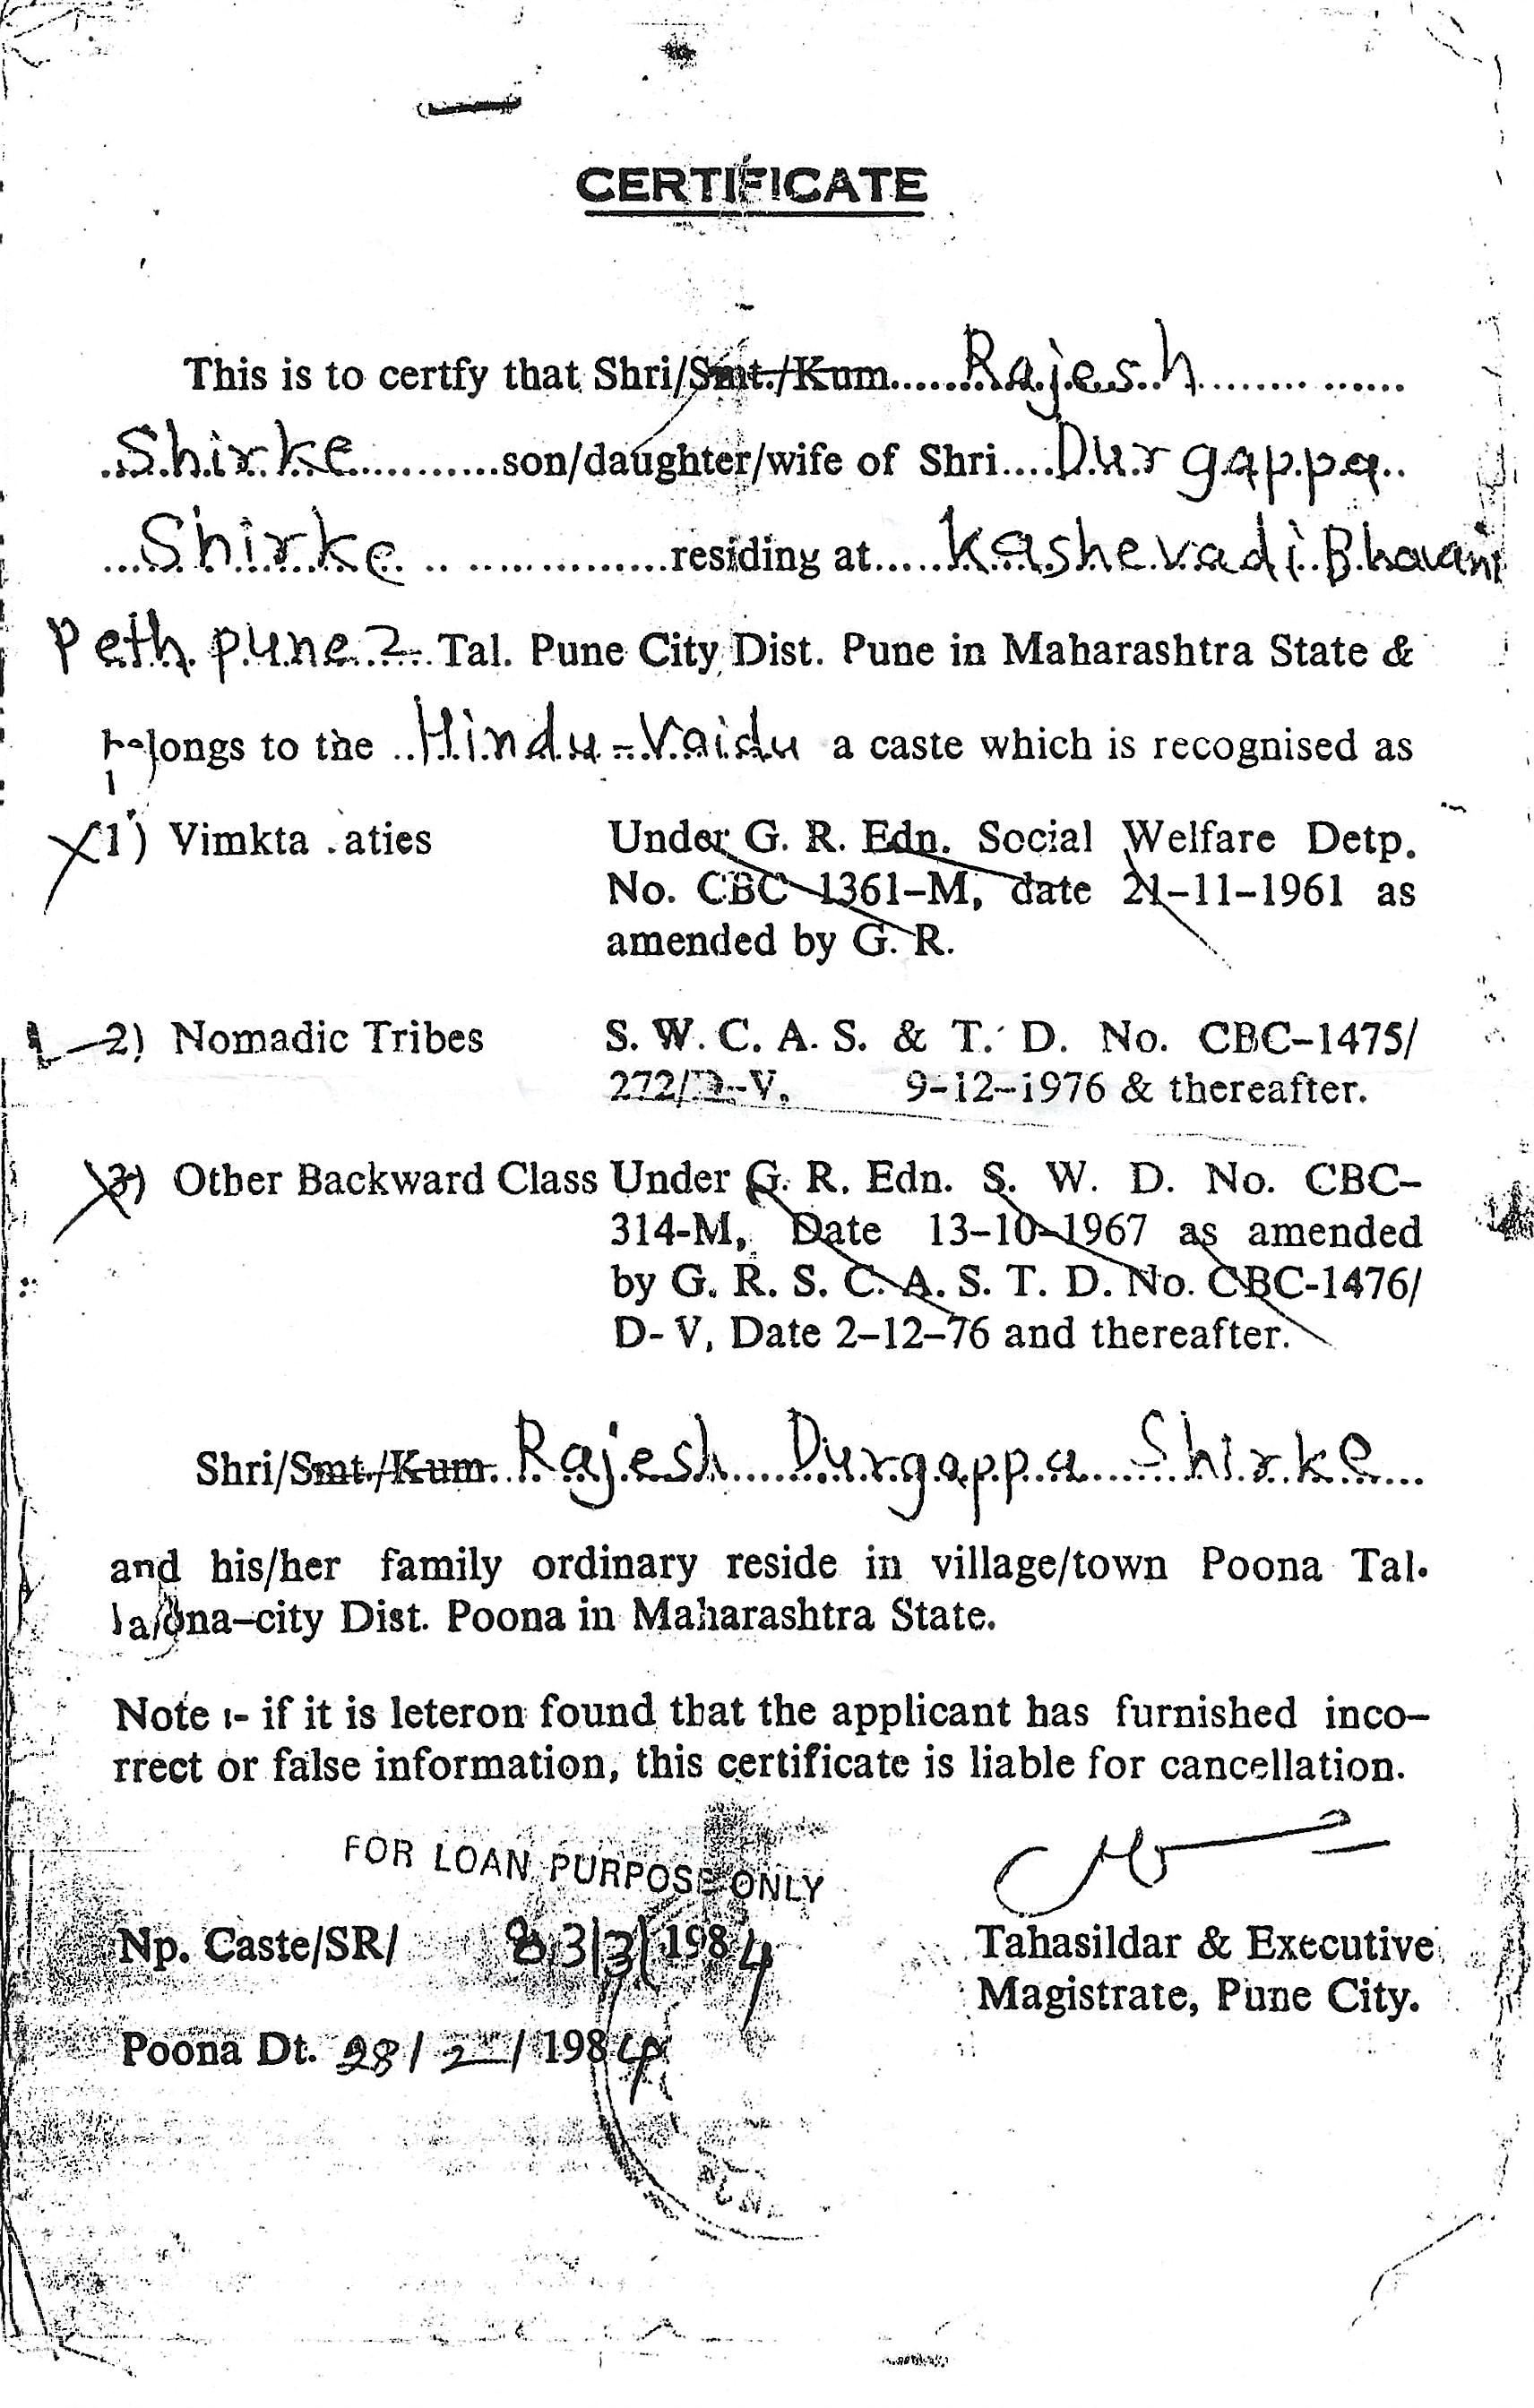 CERTIFICATE
This is to certfy that Shri/Smt./Kum......Rajesh..............
Shirke...........son/daughter/wife of Shri....Durgappa..
...Shirke.................residing at.....Kashevadi Bhavani
Peth pune 2 Tal. Pune City Dist. Pune in Maharashtra State &
belongs to the ..Hindu-Vaidu a caste which is recognised as
(1) Vimkta .aties Under G. R. Edn. Social Welfare Detp.
No. CBC 1361-M, date 21-11-1961 as
amended by G. R.
2) Nomadic Tribes S. W. C. A. S. & T. D. No. CBC-1475/
272/D-V, 9-12-1976 & thereafter.
3) Other Backward Class Under G. R. Edn. S. W. D. No. CBC-
314-M, Date 13-10-1967 as amended
by G. R. S. C. A. S. T. D. No. CBC-1476/
D-V, Date 2-12-76 and thereafter.
Shri/Smt./Kum. Rajesh Durgappa Shirke
and his/her family ordinary reside in village/town Poona Tal.
-city Dist. Poona in Maharashtra State.
Note :- if it is leteron found that the applicant has furnished inco-
rrect or false information, this certificate is liable for cancellation.
FOR LOAN PURPOSE ONLY
Np. Caste/SR/ 83/3/1984
Tahasildar & Executive
Magistrate, Pune City.
Poona Dt. 28/2/1984